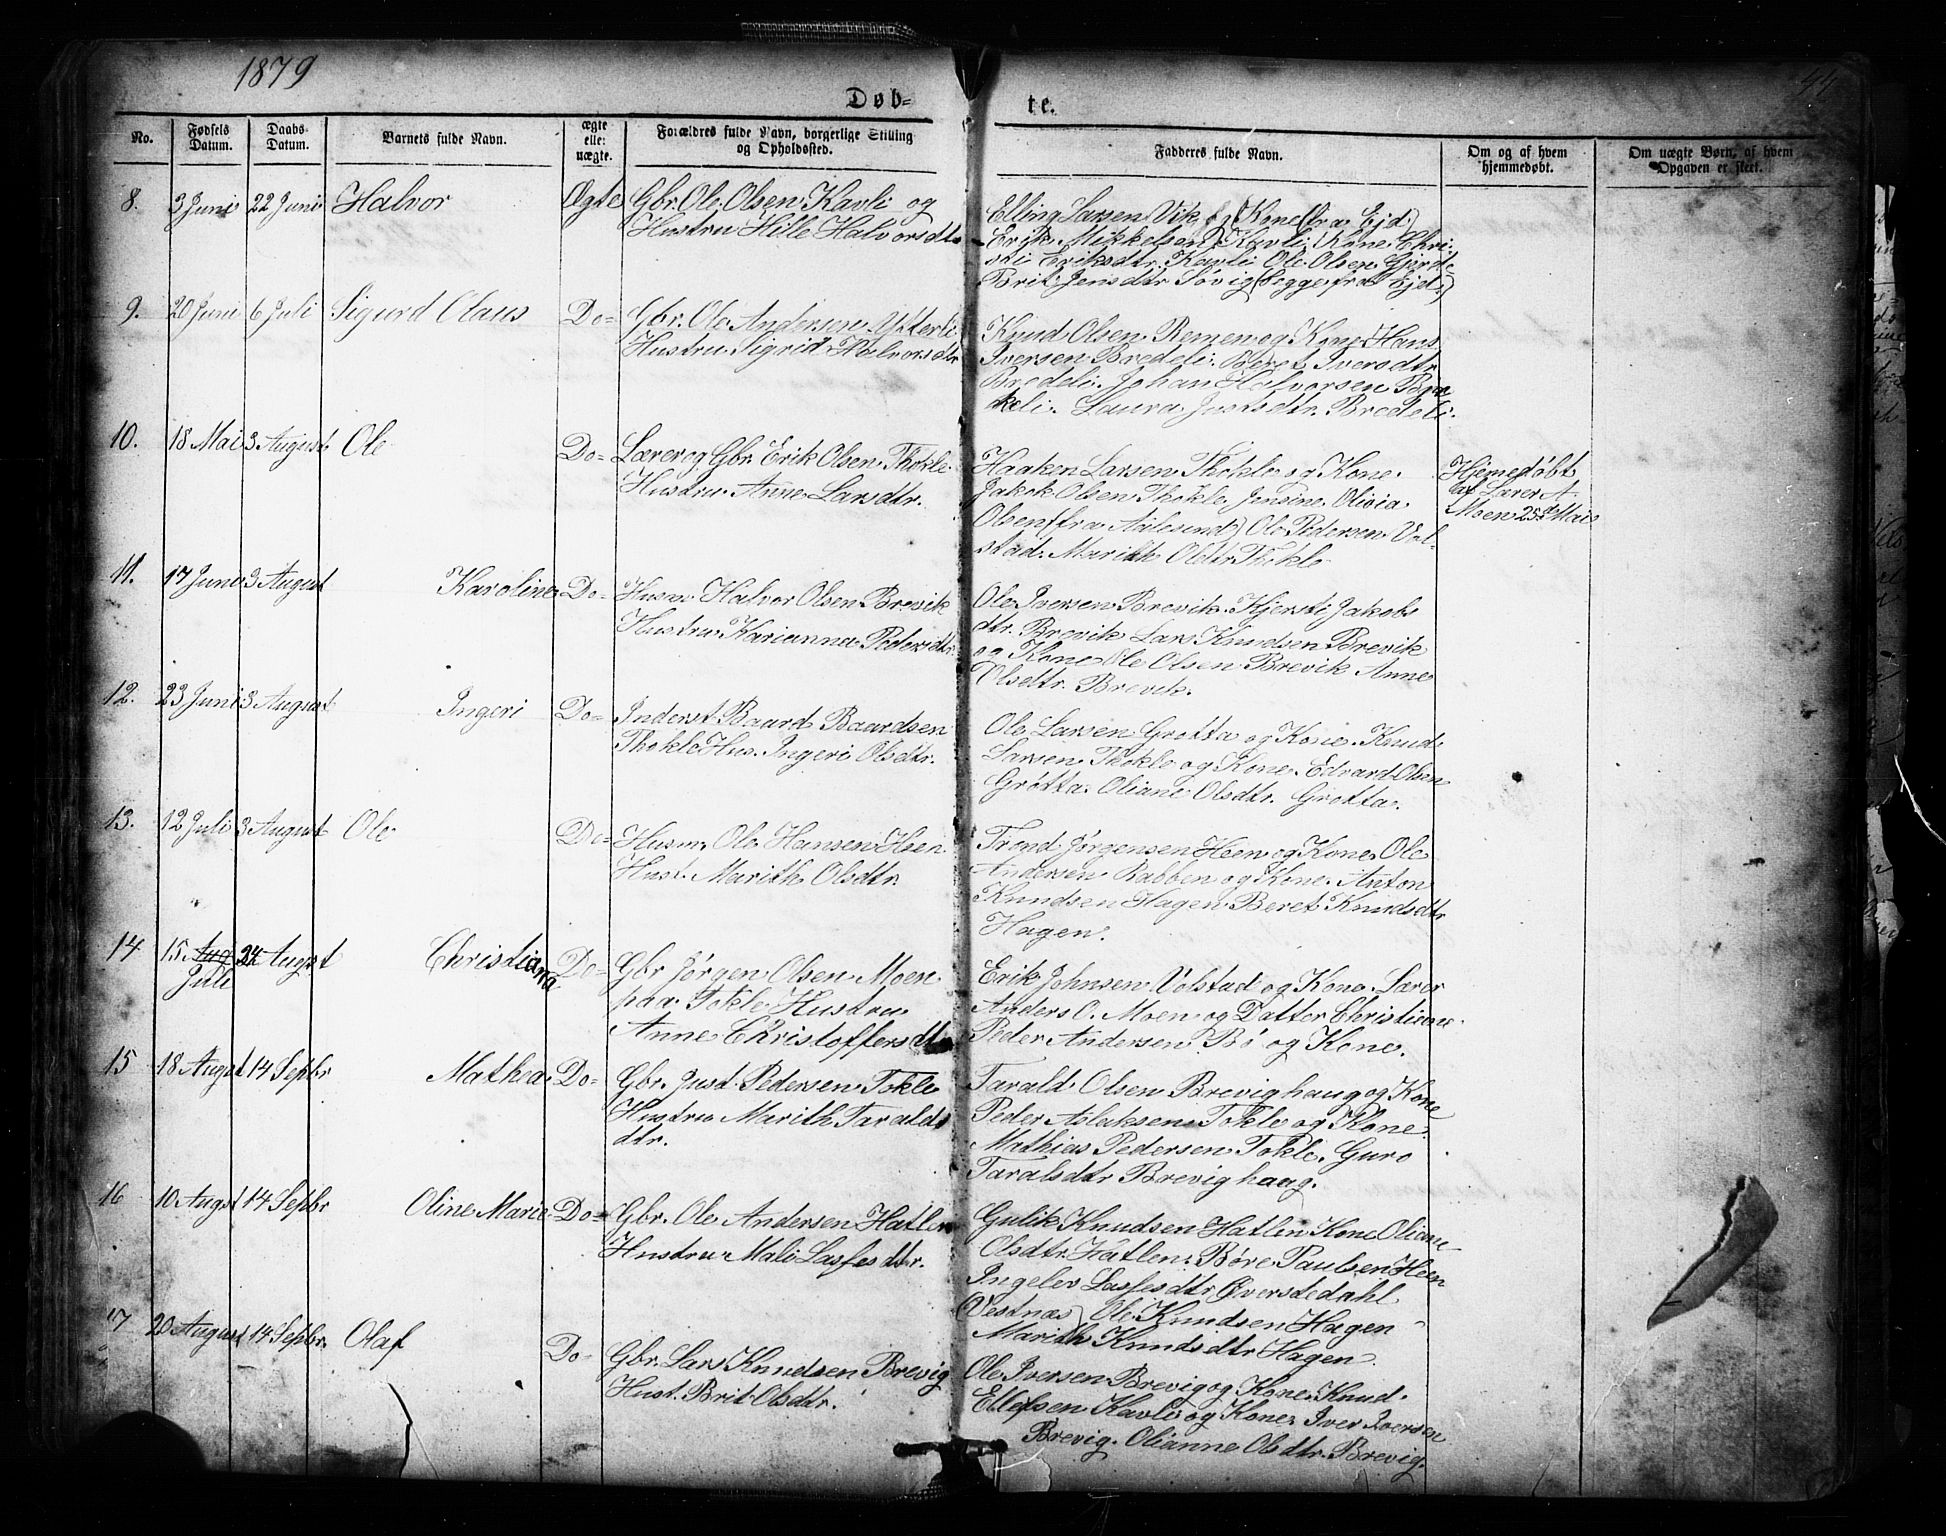 1879
44
Døb-
te.
No.
Fødsels Datum.
Daabs Datum.
Barnets fulde Navn.
ægte eller uægte.
Forældres fulde Navn, borgerlige Stilling og Opholdssted.
Fadderes fulde Navn.
Om og af hvem hjemmedøbt.
Om uægte Børn, af hvem Opgaven er sket.
8. 3 Juni 22 Juni Halvor Ægte Gbr. Ole Olsen Kavli og
Hustru Hille Halvorsdtr.
Elling Larsen Vik og Kone (fra Ejd:)
Erik Mikkelsen Kavli, Kone Chri-
sti Eriksdtr. Kavli Ole Olsen
Brit Jensdtr Søvig (begge fra Ejd:)
9. 20 Juni 6 Juli Sigurd Olaus Do= Gbr. Ole Andersen Ytterli
Hustru Sigrid Halvorsdtr
Knud Olsen Remem og Kone. Hans
Iversen Bredeli. Beret Iversdtr
Bredeli. Johan Halvorsen
Laura Justsdtr. Bredeli.
10. 18 Mai 3 August Ole Do= Lærer og Gbr. Erik Olsen Thokle
Hustru Anne Larsdtr.
Haaken Larsen Thokle og Kone.
Jakob Olsen Thokle Jensine Olivia
Olsen (fra Aalesund) Ole Pedersen Vol-
stad. Marith Oldtr Thokle
Hjemedøbt
af Lærer A.
Moen 25de Mai
11. 17 Juni 3 August Karoline Do= Husm Halvor Olsen Brevik
Hustru Karianna Pedersdtr.
Ole Iversen Brevik. Kjersti Jakobs
dtr. Brevik Lars Knudsen Brevik
og Kone Ole Olsen Brevik Anne
Olsdtr. Brevik.
12. 23 Juni 3 August Ingeri Do= Inderst Baard Baardsen
Thokle Hus. Ingeri Olsdtr.
Ole Larsen Grotta og Kone. Knud
Larsen Thokle og Kone. Edvard Olsen
Grøtta. Oliane Olsdtr. Grotta.
13. 12 Juli 3 August Ole Do= Husm. Ole Hansen Heen
Hust. Marith Olsdtr.
Trond Jørgensen Heen og Kone. Ole
Andersen Rabben og Kone. Anton
Knudsen Hagen Beret Knudsdtr
Hagen.
14 15 Aug 24 Augst Christiana Do= Gbr Jørgen Olsen Moen
Juli
paa Tokle Hustru
Anne Christoffersdtr
Erik Johnsen Volstad og Kone. Lærer
Anders O. Moen og Datter Christiane
Peder Andersen Bø og Kone.
15 18 Augst 14 Septbr Mathea Do= Gbr. Just Pedersen Tokle
Hustru Marith Taralds
dtr.
Tarald Olsen Brevighaug og Kone
Peder Aslaksen Tokle og Kone.
Mathias Pedersen Tokle. Guro
Taralsdtr Brevighaug.
16 10 Augst 14 Septbr Oline Marie Do= Gbr. Ole Andersen Hatlen
Hustru Mali Lasfesdtr.
Gulik Knudsen Hatlen Kone Oliane
Olsdtr Hatlen. Børe Paulsen Heen
Ingelev Lasfesdtr Øverstedahl
(Vestnæs) Ole Knudsen Hagen
Marith Knudsdtr Hagen.
17 20 August 14 Septbr. Olaf Do= Gbr. Lars Knudsen Brevig
Hust. Brit Olsdtr.
Ole Iversen Brevig og Kone. Knud
Ellefsen Kavli og Kone. Iver Iversen
Brevig. Olianne Olsdtr. Brevig.